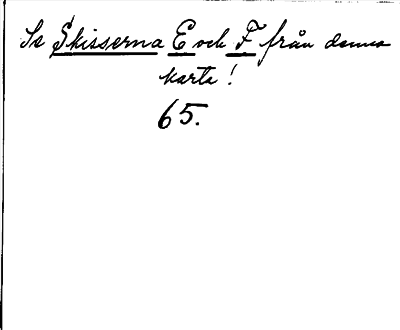 Se Skisserna E och F från denna
karta!
65.